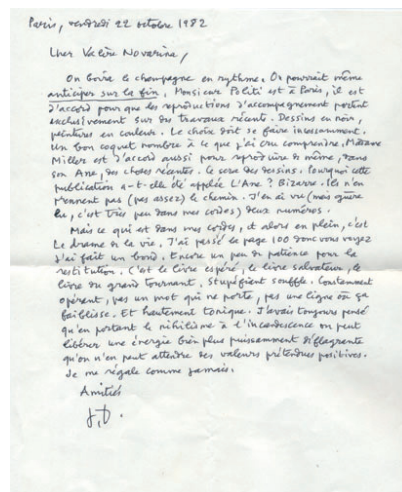 Paris, vendredi 22 octobre 1982
Cher Valère Novarina,
On boira le champagne en rythme. On pourrait même
anticiper sur la fin. Monsieur Politi est à Paris, il est
d'accord pour que les reproductions d'accompagnement portent
exclusivement sur des travaux récents. Dessins en noir,
peintures en couleurs. Le choix doit se faire incessamment.
Un bon coquet nombre à ce que j'ai cru comprendre. Madame
Miller est d'accord aussi pour reproduire de même, dans
son Ane, des choses récentes. Ce sera des dessins. Pourquoi cette
publication a-t-elle été appelée L'Ane ? Bizarre. Ils n'en
prennent pas (pas assez) le chemin. J'en ai vu (mais guère
lu, c'est très peu dans mes cordes) deux numéros.
Mais ce qui est dans mes cordes, et alors en plein, c'est
Le drame de la vie. J'ai passé la page 100 donc vous voyez
j'ai fait un bond. Encore un peu de patience pour la
restitution. C'est le livre espéré, le livre salvateur, le
livre du grand tournant. Stupéfiant souffle. Constamment
opérant, pas un mot qui ne porte, pas une ligne où ça
faiblisse. Et hautement tonique. J'avais toujours pensé
qu'en portant le nihilisme à l'incandescence on peut
libérer une énergie bien plus puissamment déflagrante
qu'on n'en peut attendre des valeurs prétendues positives.
Je me régale comme jamais.
Amitiés
J.D.